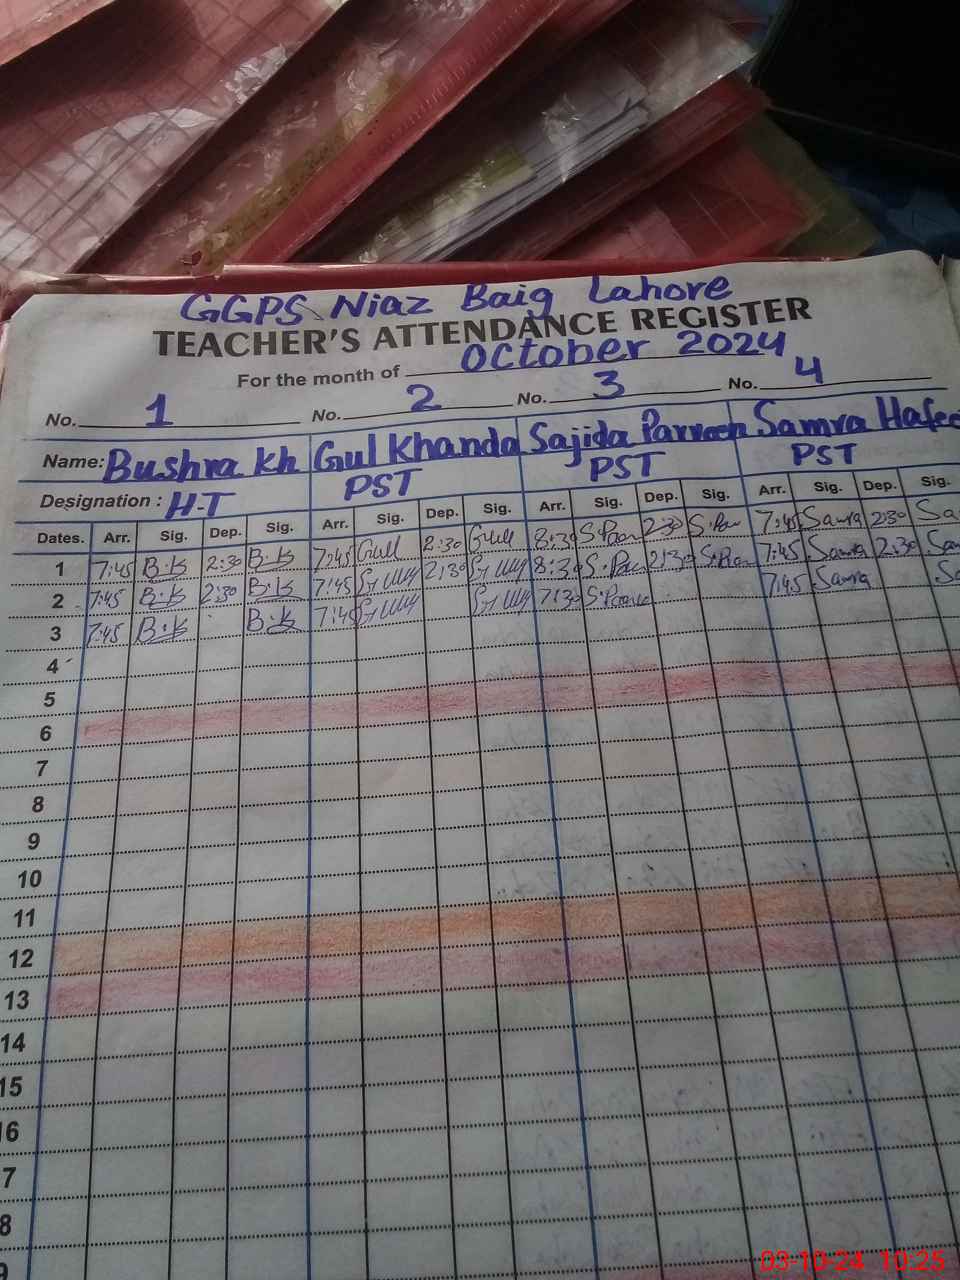 GGPS Niaz Baig Lahore
TEACHER'S ATTENDANCE REGISTER
For the month of October 2024
No. 1 No. 2 No. 3 No. 4
Name: Bushra kh Gul Khanda Sajida Parveen Samra Hafee
Designation : H-T PST PST PST
Dates. Arr. Sig. Dep. Sig. Arr. Sig. Dep. Sig. Arr. Sig. Dep. Sig. Arr. Sig. Dep. Sig.
1 7:45 B.K 2:30 B.K 7:45 Gull 2:30 Gull 8:30 2:30 7:45 Samra 2:30 Sa
2 7:45 B.K 2:30 B.K 7:45 2:30 8:30 2:30 7:45 Samra 2:30 Sam
3 7:45 B.K B.K 7:45 7:30 7:45 Samra Sa
4
5
6
7
8
9
10
11
12
13
14
15
16
7
8
9
03-10-24 10:25